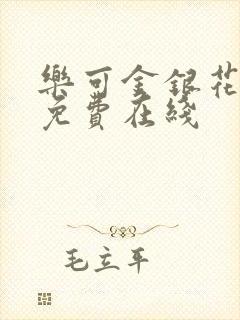 樂可金銀花
免費在綫
毛立平